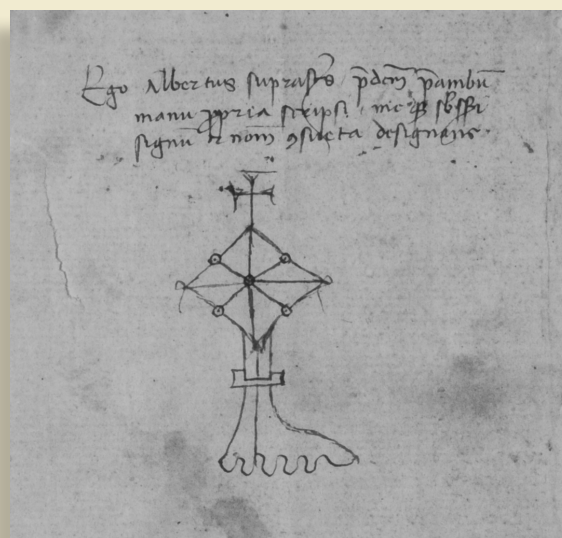 Ego Albertus suprasc̃s p̃dcm̃ p̃ambũ
manu ꝓpria scripsi meqꝫ sb̃sc̃psi
signũ et nom̃ ꝯsueta designans.